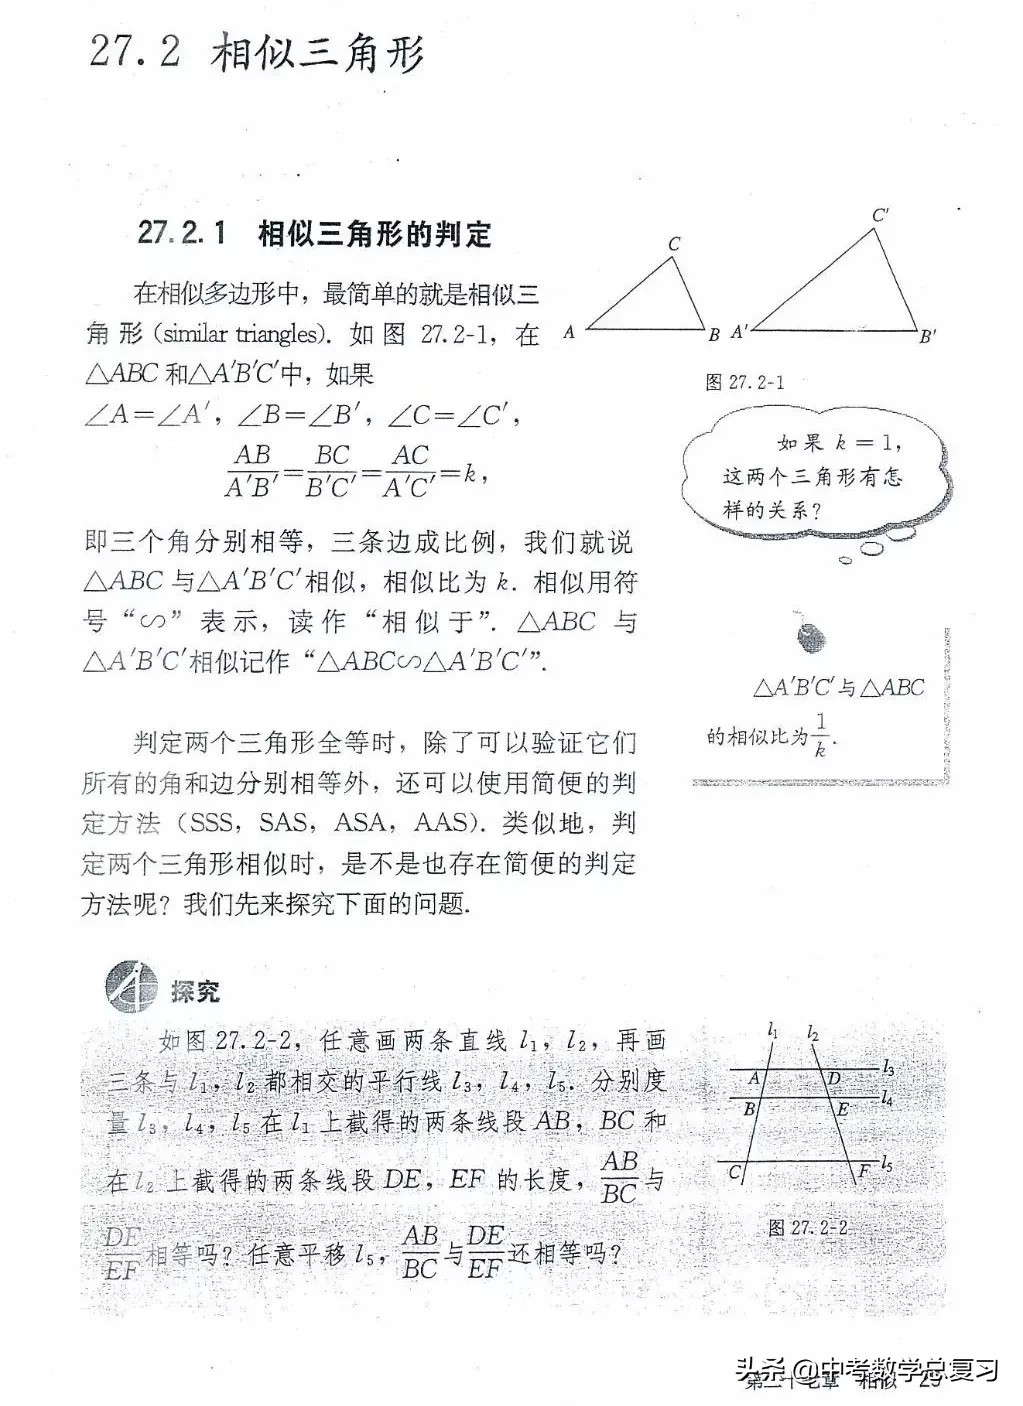 27.2 相似三角形
27.2.1 相似三角形的判定
在相似多边形中，最简单的就是相似三
角形(similar triangles). 如图 27.2-1，在
△ABC 和△A′B′C′中，如果
∠A=∠A′，∠B=∠B′，∠C=∠C′，
AB/A′B′=BC/B′C′=AC/A′C′=k，
即三个角分别相等，三条边成比例，我们就说
△ABC 与△A′B′C′相似，相似比为 k. 相似用符
号“∽”表示，读作“相似于”. △ABC 与
△A′B′C′相似记作“△ABC∽△A′B′C′”.
C
A
B
C′
A′
B′
图 27.2-1
如果 k=1，
这两个三角形有怎
样的关系？
△A′B′C′与△ABC
的相似比为1/k.
判定两个三角形全等时，除了可以验证它们
所有的角和边分别相等外，还可以使用简便的判
定方法（SSS，SAS，ASA，AAS）. 类似地，判
定两个三角形相似时，是不是也存在简便的判定
方法呢？我们先来探究下面的问题.
探究
如图 27.2-2，任意画两条直线 l₁，l₂，再画
三条与 l₁，l₂ 都相交的平行线 l₃，l₄，l₅. 分别度
量 l₃，l₄，l₅ 在 l₁ 上截得的两条线段 AB，BC 和
在 l₂ 上截得的两条线段 DE，EF 的长度，AB/BC与
DE/EF相等吗？任意平移 l₅，AB/BC与DE/EF还相等吗？
l₁
l₂
A
D
l₃
B
E
l₄
C
F
l₅
图 27.2-2
头条 @中考数学总复习
第二十七章 相似